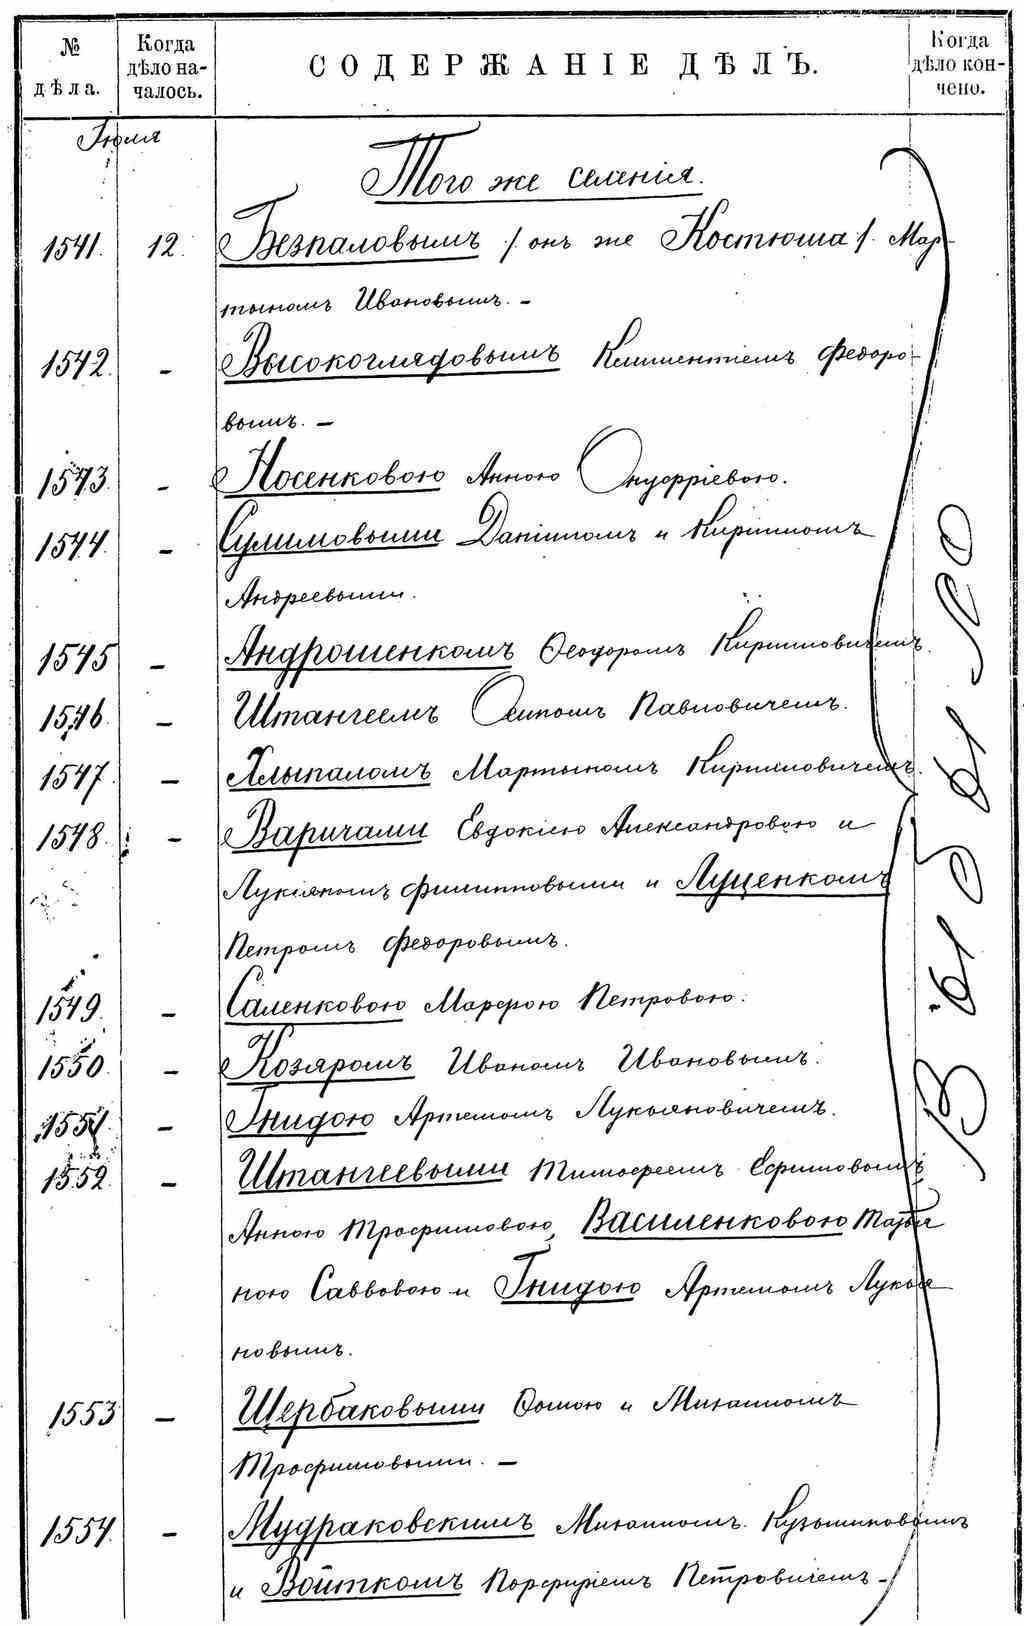 № дѣла.
Когда дѣло на-
чалось.
СОДЕРЖАНІЕ ДѢЛЪ.
Когда дѣло кон-
чено.
Іюля
Того же селенія.
1541. 12. Безпаловымъ /. онъ же Костюша /. Мар-
тыномъ Ивановымъ. –
1542. – Высокоглядовымъ Климентіемъ Федоро-
вымъ. –
1543. – Носенковою Анною Онуфріевою.
1544. – Сулимовыми Даніиломъ и Кирилломъ
Андреевыми.
1545 – Андрошенкомъ Ѳеодоромъ Кирилловичемъ.
1546. – Штангеемъ Осипомъ Павловичемъ.
1547. – Хлыпаломъ Мартыномъ Кирилловичемъ.
1548. – Варичами Евдокіею Александровою и
Лукіяномъ Филипповыми и Луценкомъ
Петромъ Федоровымъ.
1549. – Саленковою Марфою Петровою.
1550. – Козяромъ Иваномъ Ивановымъ.
1551. – Гнидою Артемомъ Лукьяновичемъ.
1552. – Штангеевыми Тимофеемъ Ефимовымъ,
Анною Трофимовою, Василенковою Татья
ною Савовою и Гнидою Артемомъ Лукья
новымъ.
1553 – Щербаковыми Ѳомою и Михаиломъ
Трофимовыми. –
1554. – Мудраковскимъ Михаиломъ Кузьминовымъ
и Войткомъ Порфиріемъ Петровичемъ –
Выбыло